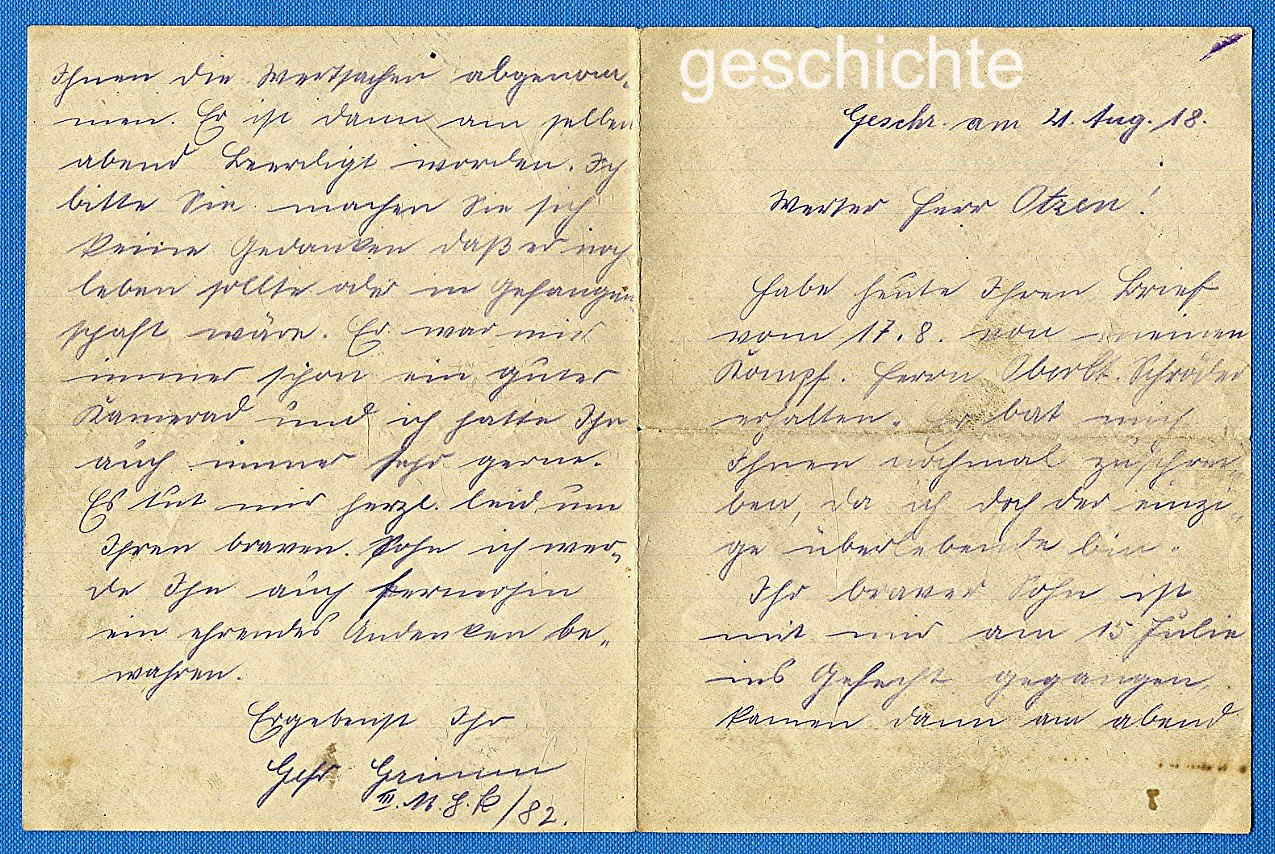 geschichte
Geschr. am 21. Aug. 18.
Werter Herr Otzen!
Habe heute Ihren Brief
vom 17.8. von meinen
Kompf. Herrn Oberlt. Schröder
erhalten. Er bat mich
Ihnen nochmal zuschrei„
ben, da ich doch der einzi„
ge überlebende bin.
Ihr braver Sohn ist
mit mir am 15 Julie
ins Gefecht gegangen,
kamen dann am abend
Ihnen die Wertsachen abgenom„
men. Er ist dann am selben
abend Beerdigt worden. Ich
bitte Sie machen Sie sich
keine Gedanken daß er noch
leben sollte oder in Gefangen
schaft wäre. Er war mir
immer schon ein guter
Kamerad und ich hatte Ihn
auch immer sehr gerne.
Es tut mir herzl. leid um
Ihren braven Sohn ich wer„
de Ihn auch fernerhin
ein ehrendes Andenken be„
wahren.
Ergebenst Ihr
Gefr Grimm
III. M.G.K/82.